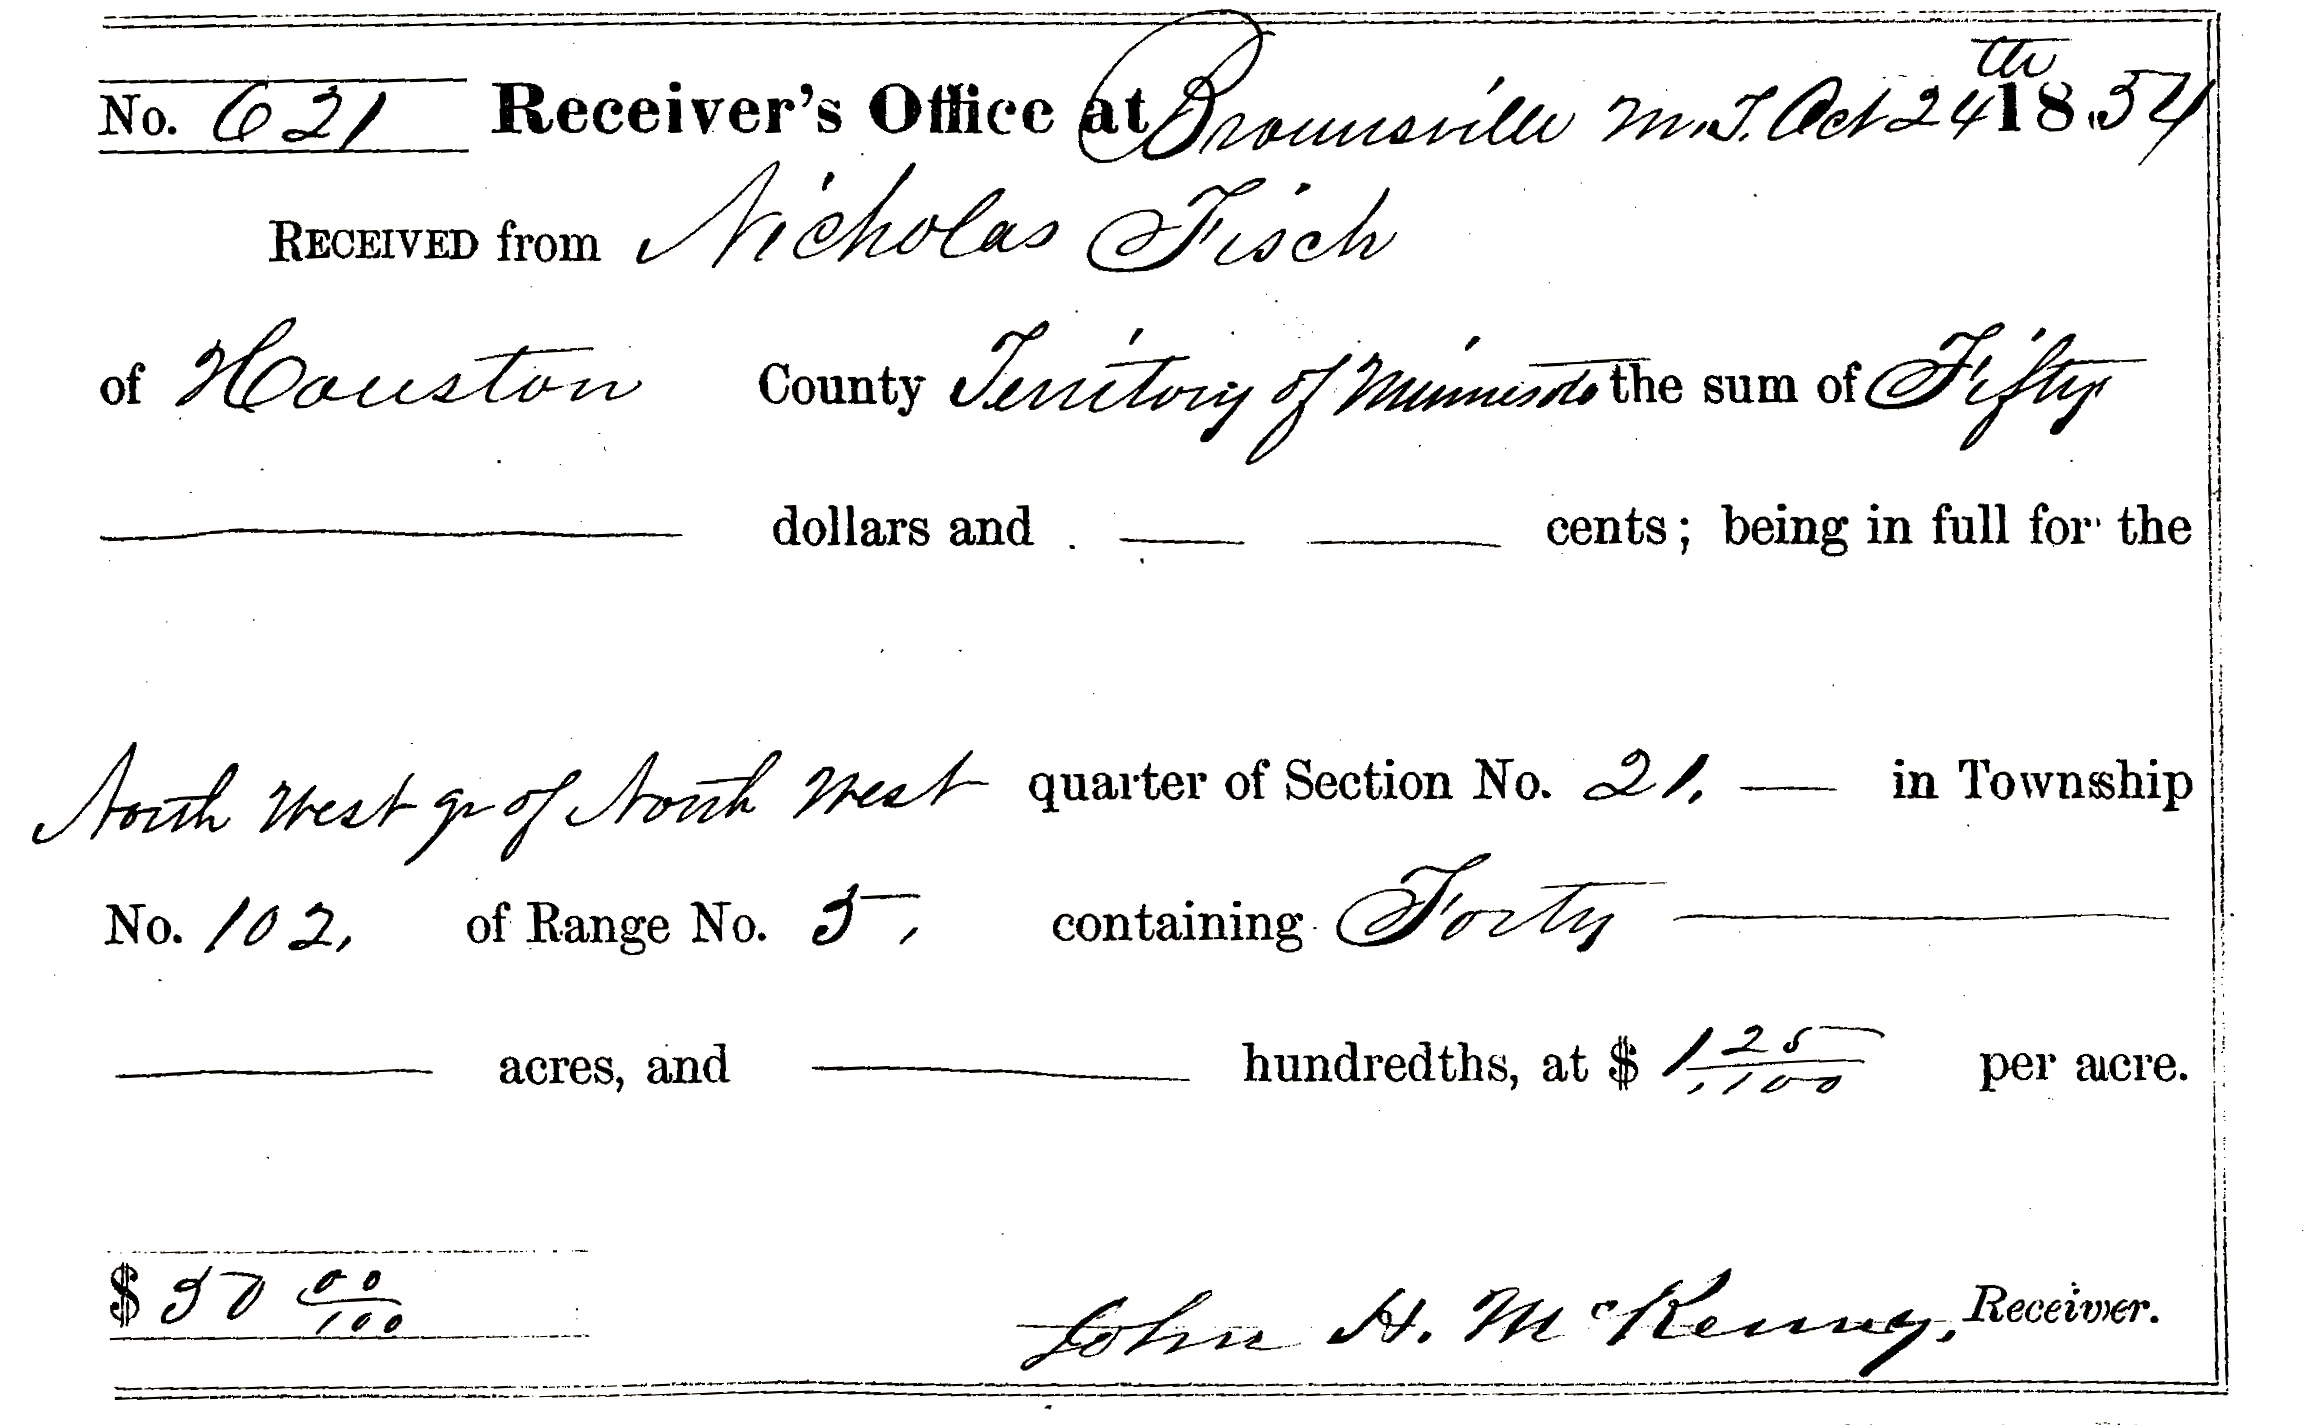 No. 621 Receiver's Office at Brownsville M.T. Oct 24th 1854
RECEIVED from Nicholas Fisch
of Houston County Territory of Minnesota the sum of Fifty
dollars and cents; being in full for the
North West qr of North West quarter of Section No. 21, — in Township
No. 102, of Range No. 5, containing Forty
acres, and hundredths, at $ 1 25/100 per acre.
$ 50 00/100 John H. McKenny, Receiver.